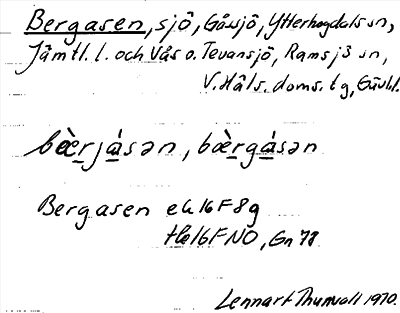 Bergasen, sjö, Gåssjö, Ytterhogdals sn,
Jämtl. l. och Vås o. Tevansjö, Ramsjö sn,
V. Häls. doms. tg, Gävl.
bæ̀rjásən, bæ̀rgásən
Bergasen ek 16F8g
16F NO, Gn 78
Lennart Thunvall 1970.